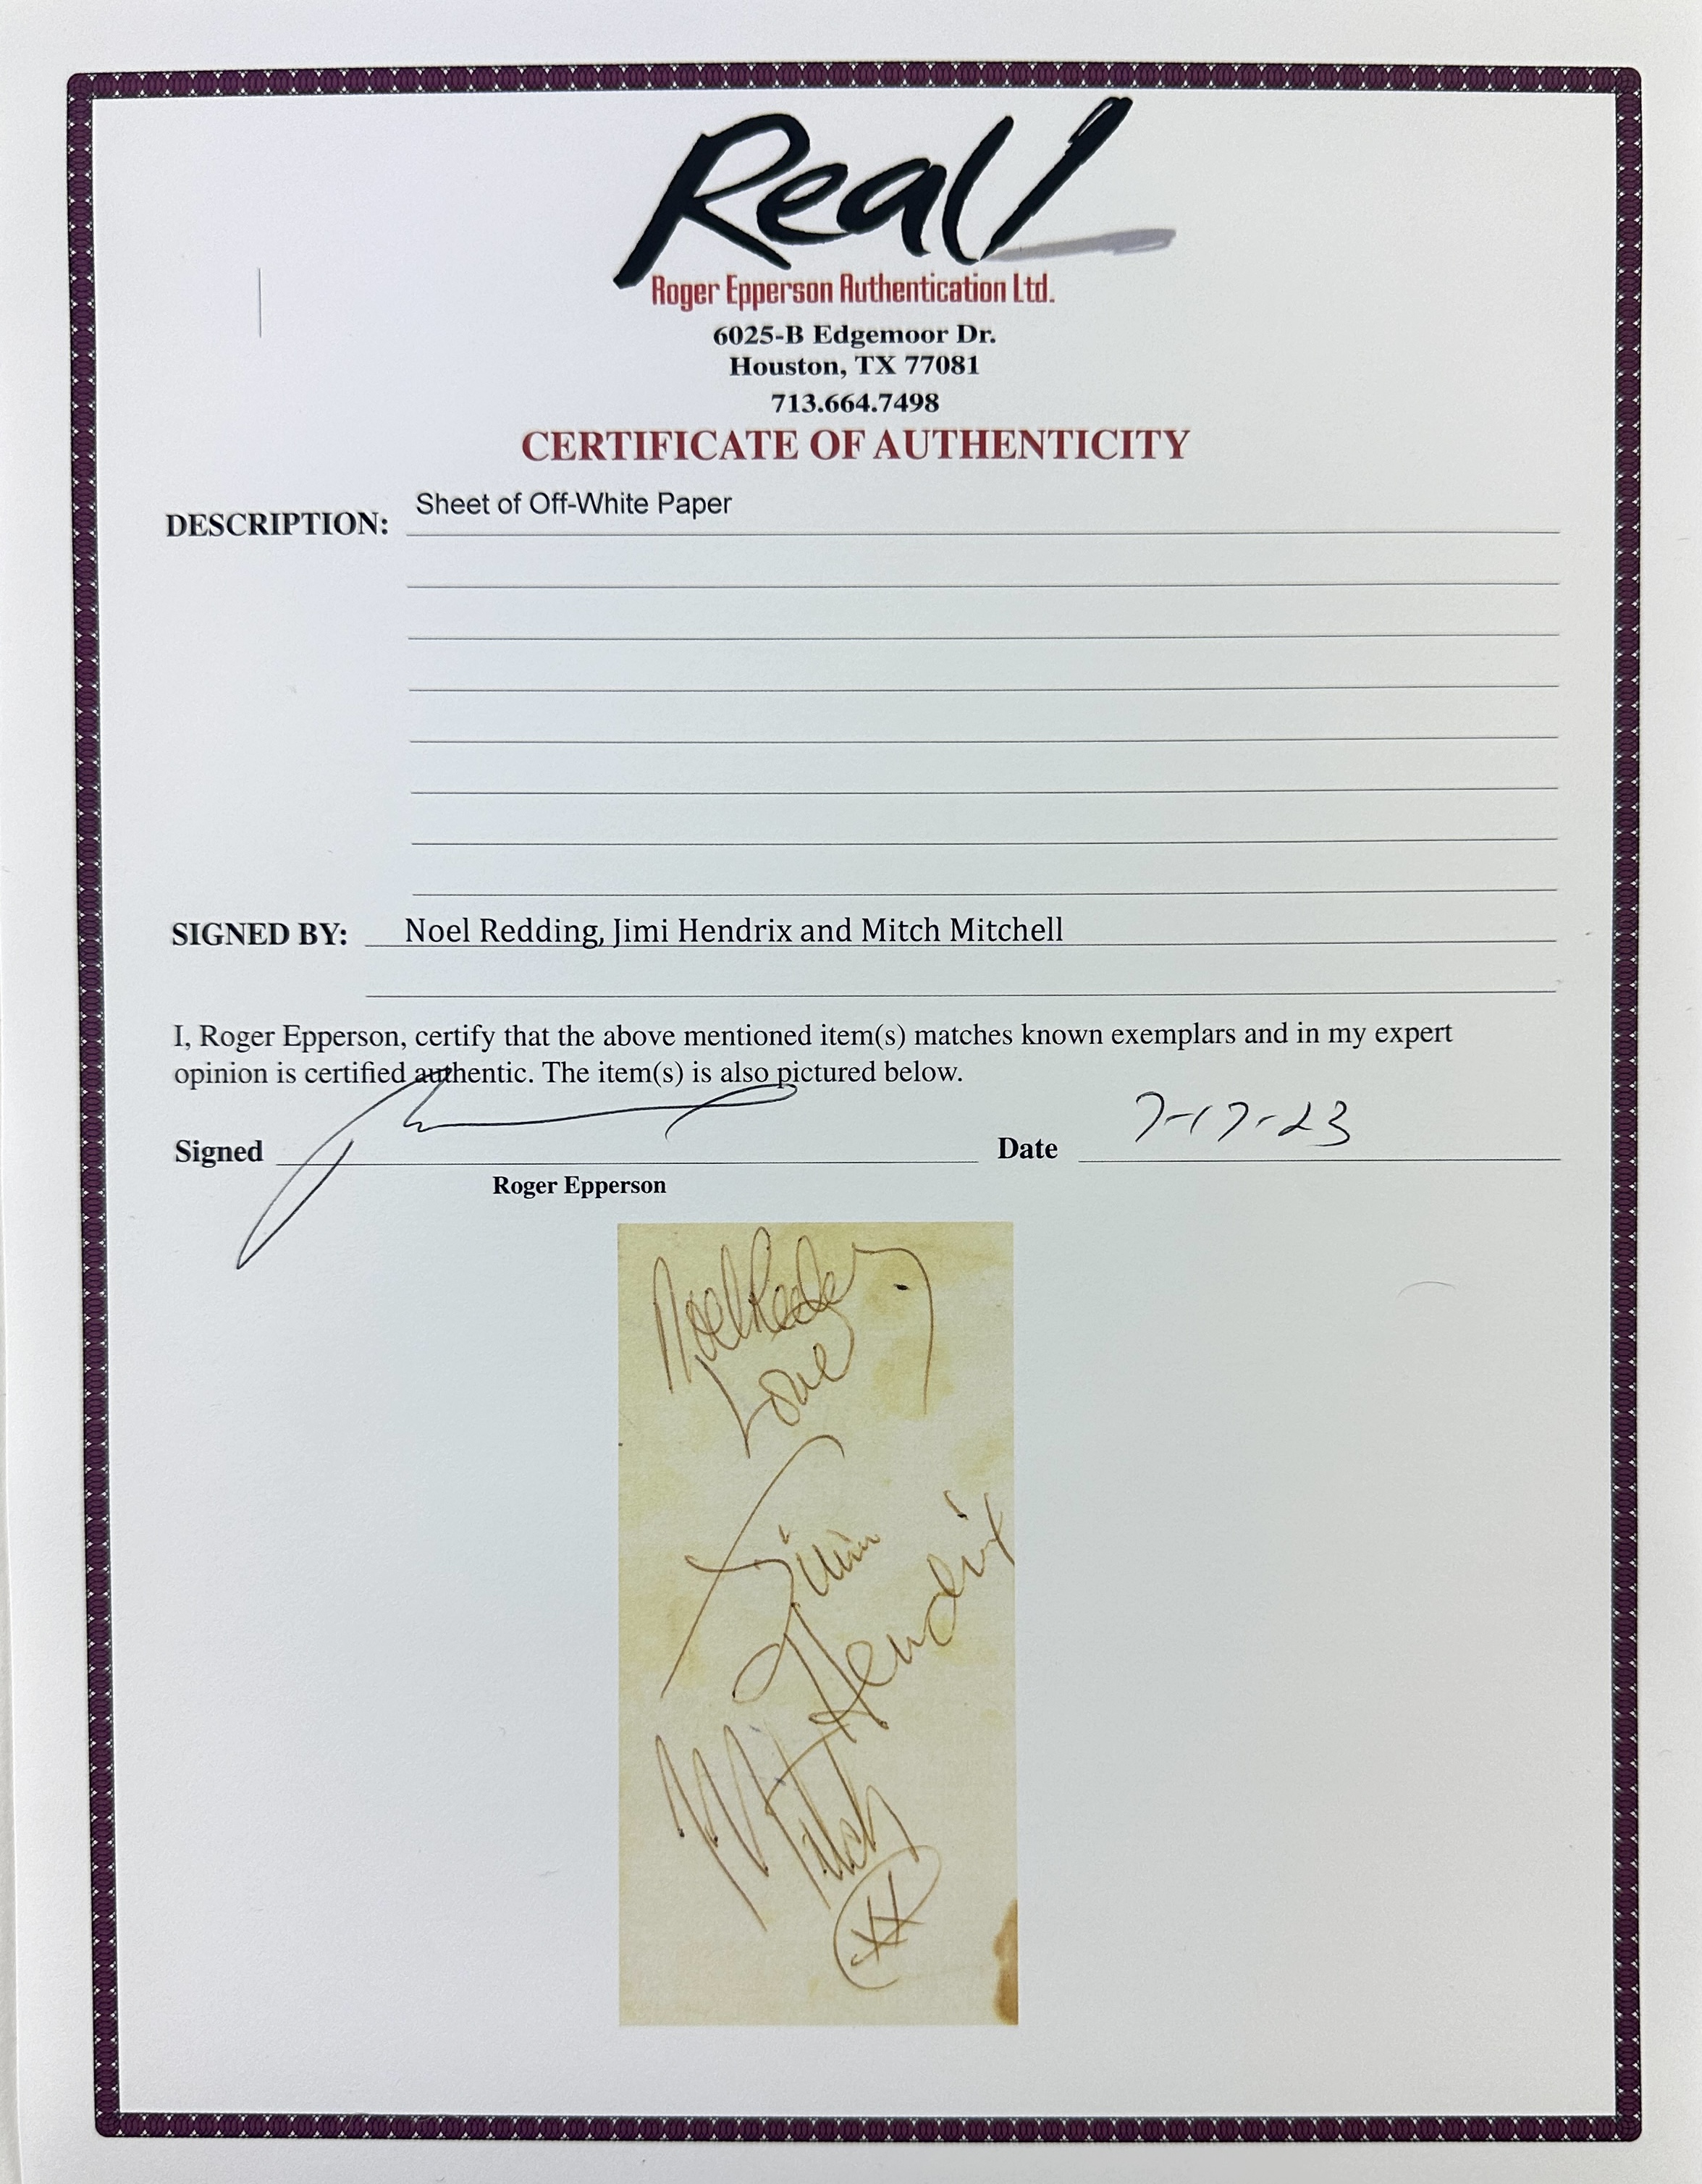 Real
Roger Epperson Authentication Ltd.
6025-B Edgemoor Dr.
Houston, TX 77081
713.664.7498
CERTIFICATE OF AUTHENTICITY
DESCRIPTION: Sheet of Off-White Paper
SIGNED BY: Noel Redding, Jimi Hendrix and Mitch Mitchell
I, Roger Epperson, certify that the above mentioned item(s) matches known exemplars and in my expert
opinion is certified authentic. The item(s) is also pictured below.
Signed Date 7-17-23
Roger Epperson
Noel Redding
Love
Jimi
Hendrix
Mitch
XX